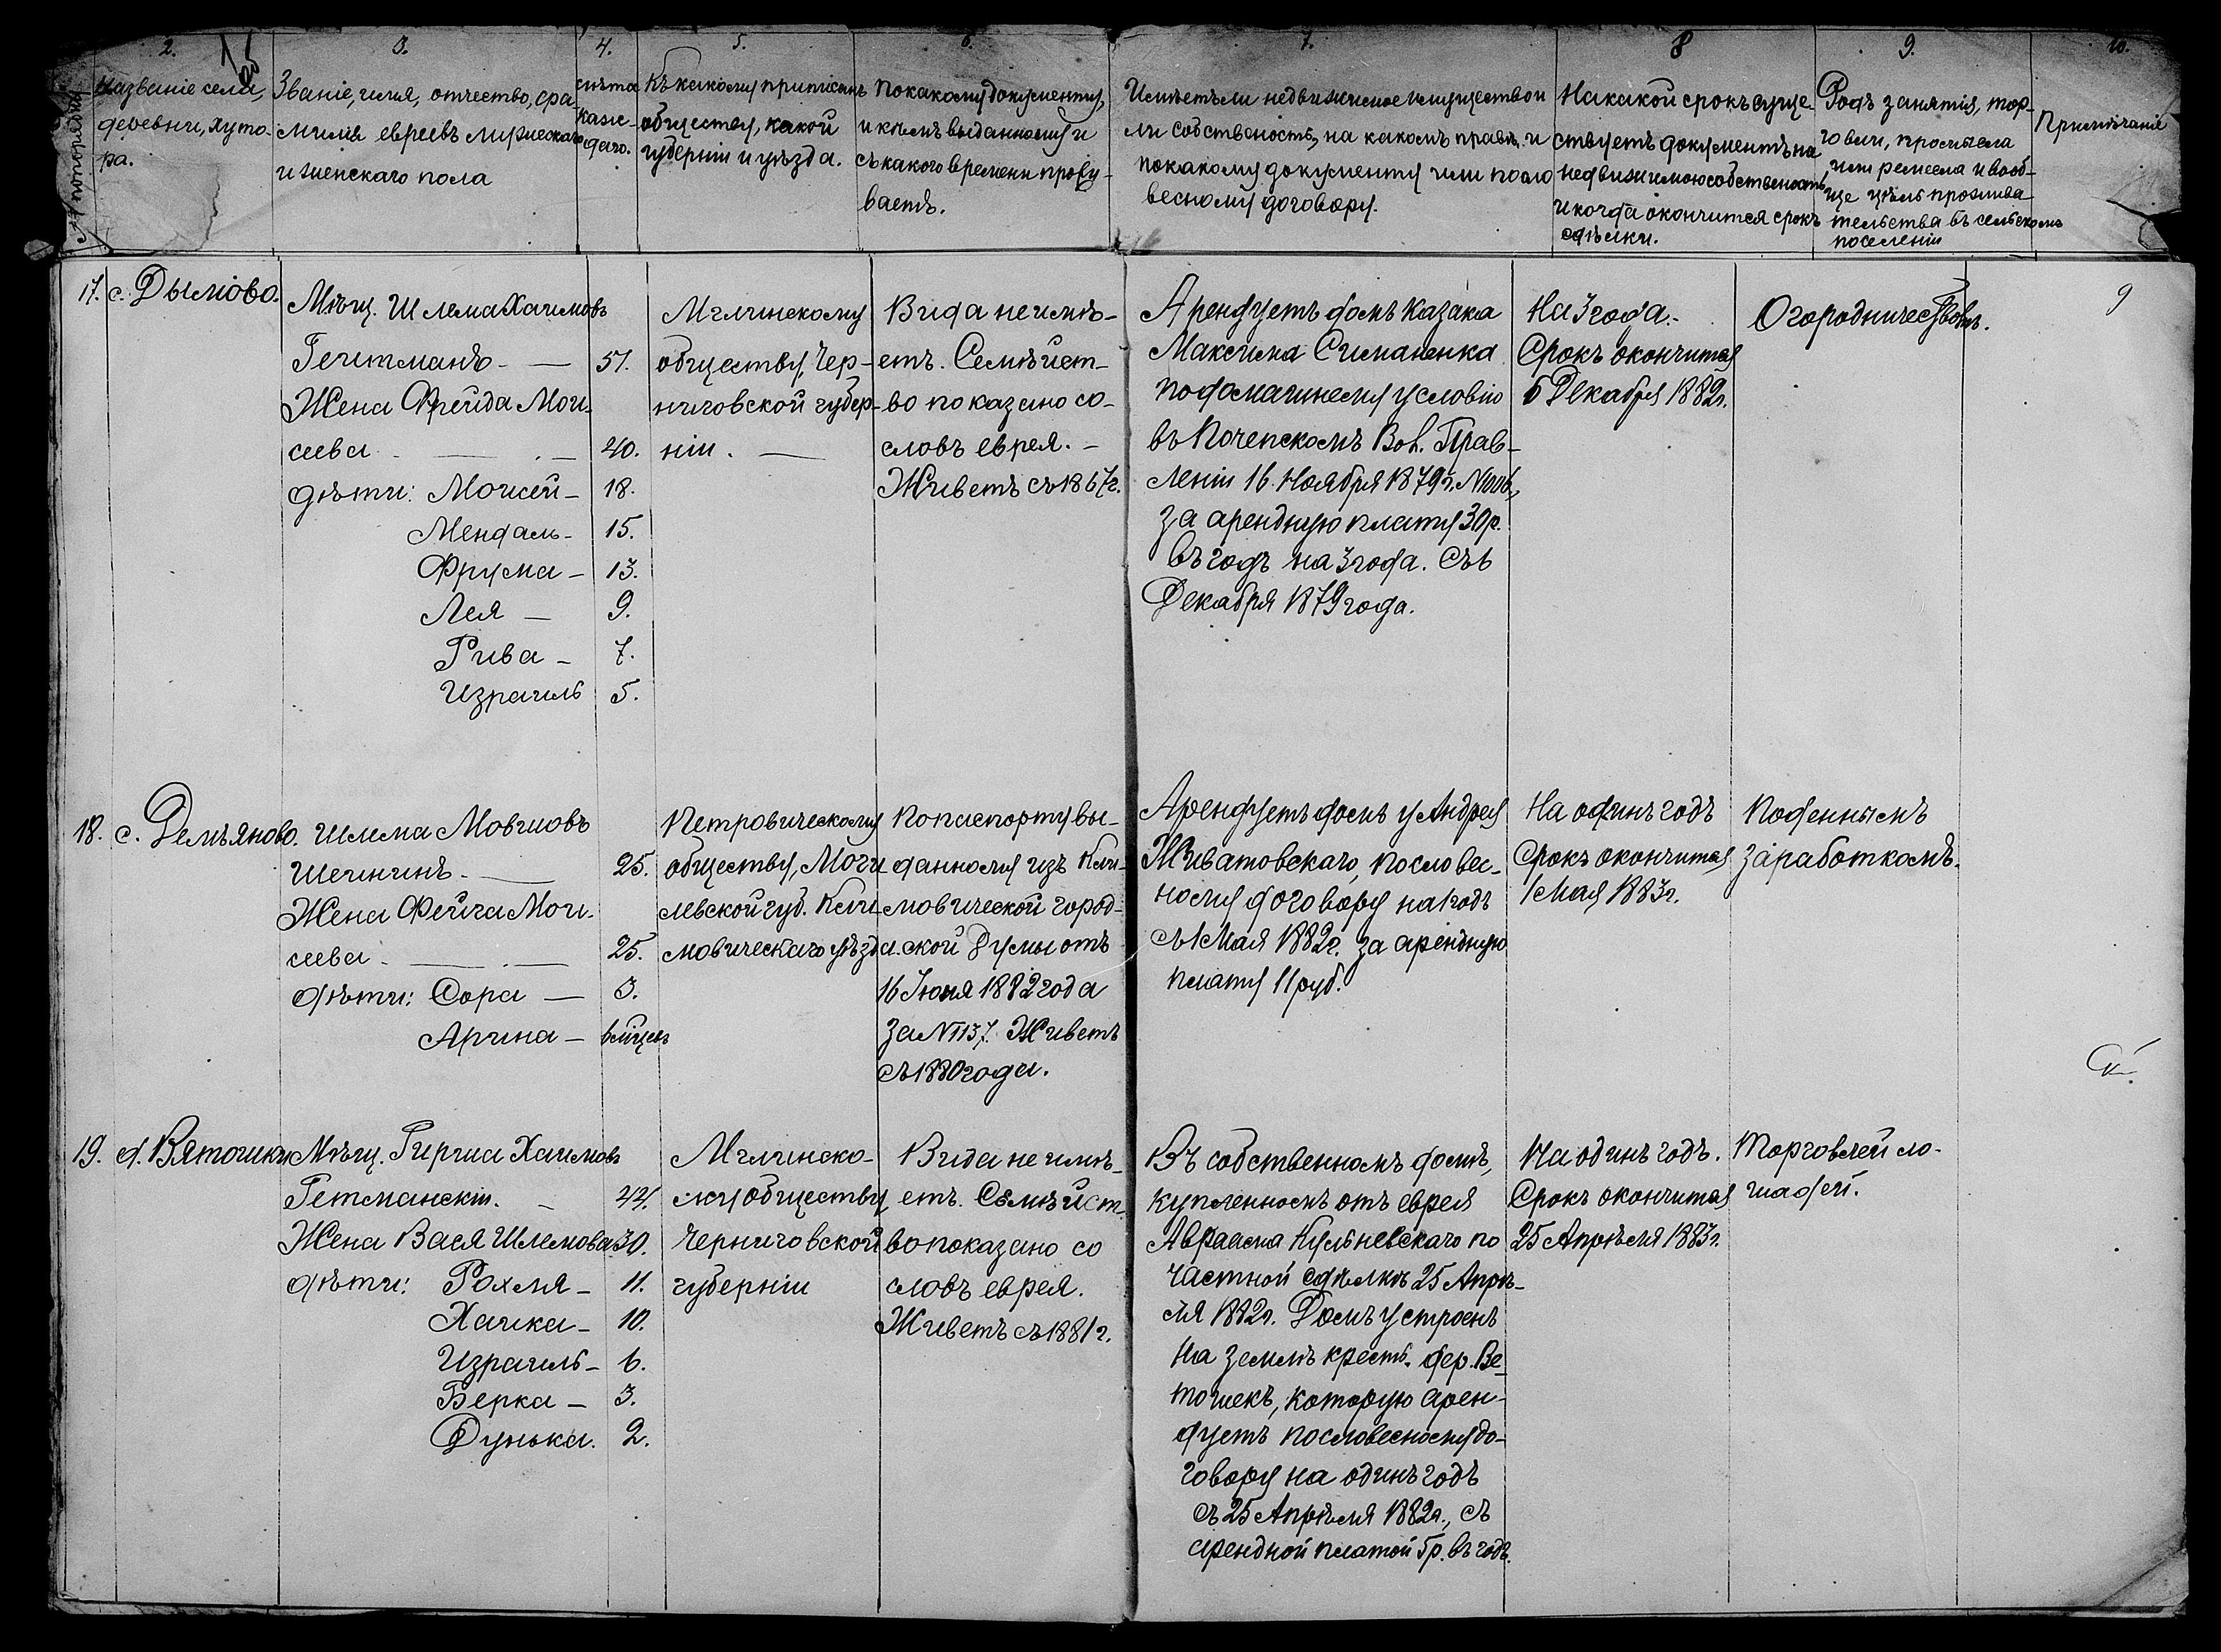 2.
3.
4.
5.
6.
7.
8
9.
10.
№ попорядку
Названіе села,
деревни, хуто-
ра.
Званіе, имя, отчество, фа-
милія евреевъ мужескаго
и женскаго пола
лѣта
кажс-
даго.
Къ какому приписанъ
обществу, какой
губерніи и уѣзда.
По какому документу,
и кѣмъ выданному и
съ какого времени прожи-
ваетъ.
Имѣетъ ли недвижимое имущество и
ли собственость, на какомъ правѣ и
по какому документу или по сло
весному договору.
На какой срокъ суще-
ствуетъ документъ на
недвижимою собственость
и когда окончится срокъ
сдѣлки.
Родъ занятія, тор-
говли, промысла
или ремесла и вооб-
ще цѣль прожива
тельства въ сельскомъ
поселеніи
Примѣчаніе
9
17. с. Дымово.
Мѣщ. Шлема Хаимовъ
Гентманъ. — 51.
Жена Фрейда Мои-
сеева — 40.
дѣти: Моисей — 18.
Мендаль — 15.
Фрума — 13.
Лея — 9.
Рива — 7.
Израиль 5.
Мглинскому
обществу, Чер-
ниговской губер-
ніи. —
Вида не имѣ-
етъ. Семѣйст-
во показано со-
словъ еврея. —
Живетъ съ 1867г.
Арендуетъ домъ казака
Максима Симаненка
по домашнему условію
въ Почепскомъ Вол. Прав-
леніи 16 Ноября 1879 г.
за арендную плату 30 р.
въ годъ на 3 года. Съ 6
Декабря 1879 года.
На 3 года.
Срокъ окончится
6 Декабря 1882г.
Огородничествомъ.
18. с. Демьяново.
Шлема Мовшовъ
Шеининъ. — 25.
Жена Фейга Мои-
сеева — 25.
дѣти: Сора — 3.
Арина —
Петровическому
обществу, Моги
левской губ. Кли-
мовическаго уѣзда
По паспорту вы-
данному изъ Кли-
мовической город-
ской Думы отъ
16 Іюня 1882 года
за № 1137. Живетъ
съ 1880 года.
Арендуетъ домъ у Андрея
Живатовскаго, по словес-
ному договору на 1 годъ
съ 1 Мая 1882г. за арендную
плату 11 руб.
На одинъ годъ
Срокъ окончится
1 Мая 1883г.
Поденнымъ
заработкомъ.
19. д. Вятошки
Мѣщ. Гирша Хаимовъ
Гетманскій. — 44.
Жена Вася Шлемова 30.
дѣти: Рохля — 11.
Хаика — 10.
Израиль — 6.
Берка — 3.
Дунька. 2.
Мглинско-
му обществу
Черниговской
губерніи
Вида не имѣ-
етъ. Семѣйст-
во показано со
словъ еврея.
Живетъ съ 1881 г.
Въ собственномъ домѣ,
купленномъ отъ еврея
Авраама Кульневскаго по
частной сдѣлкѣ 25 Апрѣ-
ля 1882г. Домъ устроенъ
на землѣ крестъ. дер. Ве-
тошекъ, которую арен-
дуетъ по словесному до-
говору на одинъ годъ
съ 25 Апрѣля 1882г., съ
арендной платой 5 р. въ годъ.
На одинъ годъ.
Срокъ окончится
25 Апрѣля 1883г.
Торговлей ло-
шадей.